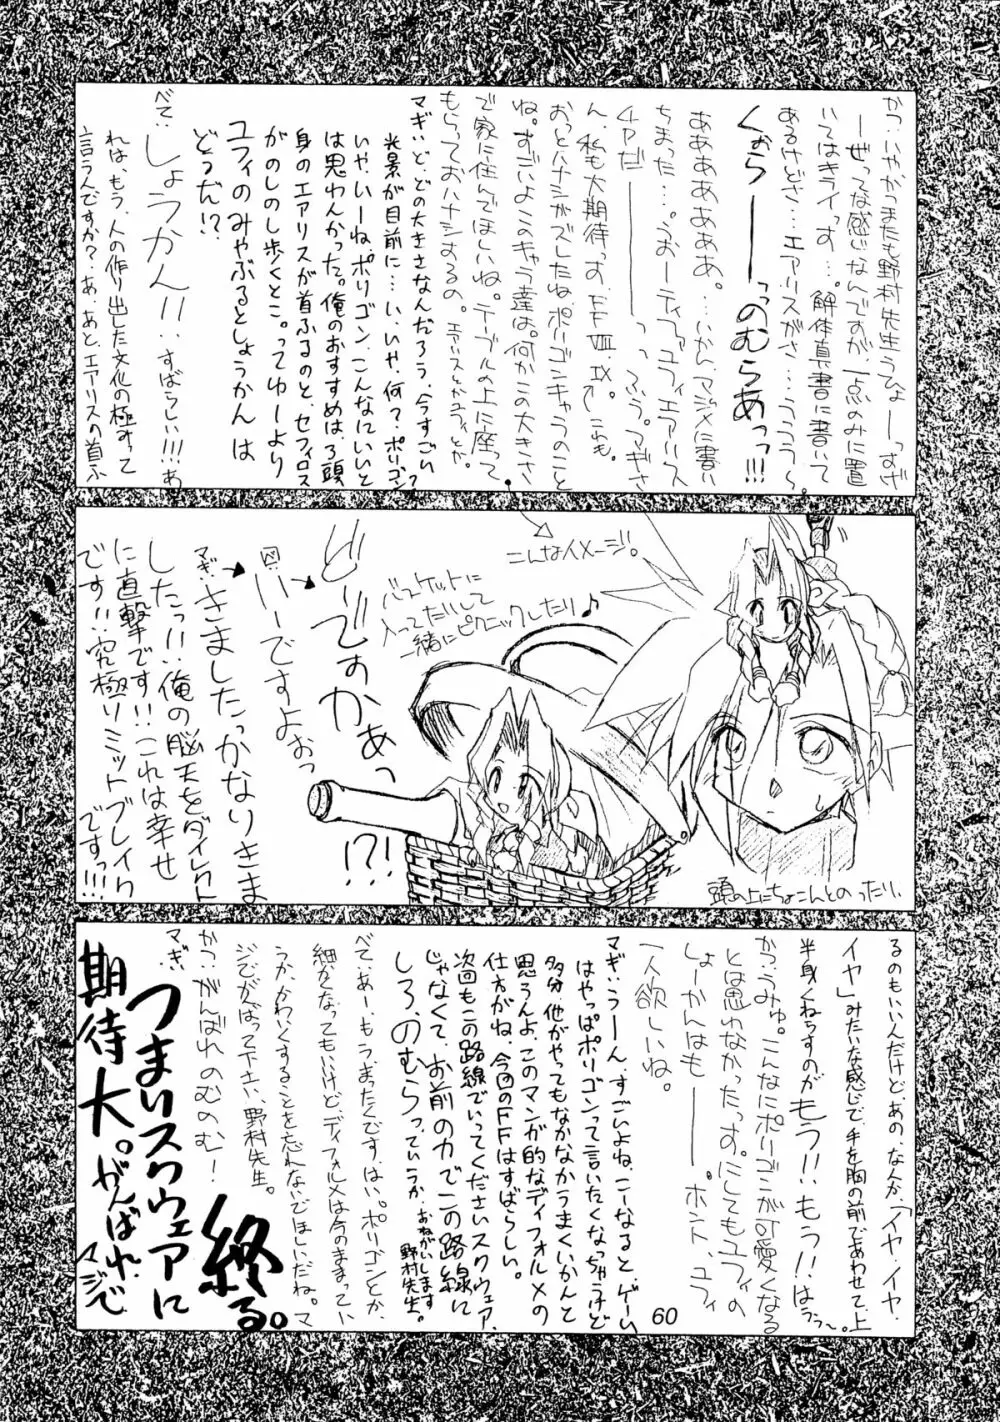 かつ‥いやかつまたも野村先生うひょーっすぜ
ーぜってな感じなんですが、一点のみに置
いてはキライっす…。解体真書に書いて
あるけどさ…エアリスがさ…うううう~。
くぉらーーーっのむらあっっ!!!
ああああああ。…いかん、マジメに書い
ちまった…。うおーティファユフィエアリス
チァだーーーっっ ふう。マギさ
ん、私も大期待っす。FFⅧ Ⅸ←これも。
おっとハナシがズレたねポリゴンキャラのこと
ね。すごいよこのキャラ達は。何かこの大きさ
で家に住んでほしいね。テーブルの上に座って
もらっておハナシするの。エアリスとかユフィとか。
マぎぃど、どの大きさなんだろう、今すごい
光景が目前に…い、いや、何?ポリゴン?
いや、いーね、ポリゴン、こんなにいいと
は思わんかった。俺のおすすめは、3頭
身のエアリスが首ふるのと、セフィロス
がのしのし歩くとこ。ってゆーより
ユフィのみやぶるとしょうかんは
どうだ!?
べて‥しょうかん!!‥すばらしい!!!あ
れは、もう、人の作り出した文化の極すって
言うんですか?あ、あと、エアリスの首ふ
こんなイメージ。
バスケットに
入ってたりして
一緒にピクニックしたり♪
頭の上にちょこんとのったり
ど!ですかあっ
!?!
い!ですよおっ
マぎぃ
きましたっかなりきま
したっ!!俺の脳天をダイレクト
に直撃です!!これは幸せ
です!!究極リミットブレイク
ですっ!!!
るのもいい人だけど、あの、なんか「イヤ、イヤ、
イヤ」みたいな感じで、手を胸の前であわせて上
半身くねらすのがもう!!もう!!はうう~。
かつ‥うみゅ。こんなにポリゴンが可愛くなる
とは思わなかったっす。にしてもユフィの
しょーかんはもーーー。ホント、ユフィ
一人欲しいね。
マぎぃうーん、すごいよね、こーなると、ゲーム
はやっぱポリゴンって言いたくなっちゃうけど
多分、他がやってもなかなかうまくいかんと
思うんよ、このマンガ的なディフォルメの
仕方がね、今回のFFはすばらしい。
次回もこの路線でいってくださいスクウェア、
じゃなくて、お前の力でこの路線に
しろ、のむらっていうか、おねがいします
野村先生。
べて‥あー、もう、まったくです、はい。ポリゴンとか、
細かくなってもいいけどディフォルメは今のままってい
うか、かわいくすることを忘れないでほしいだね。マ
ジでがんばって下さい、野村先生。
かつ‥がんばれのむのむ!
マぎぃ
つまりスクウェアに
期待大。がんばれ、マジで
終る。
60